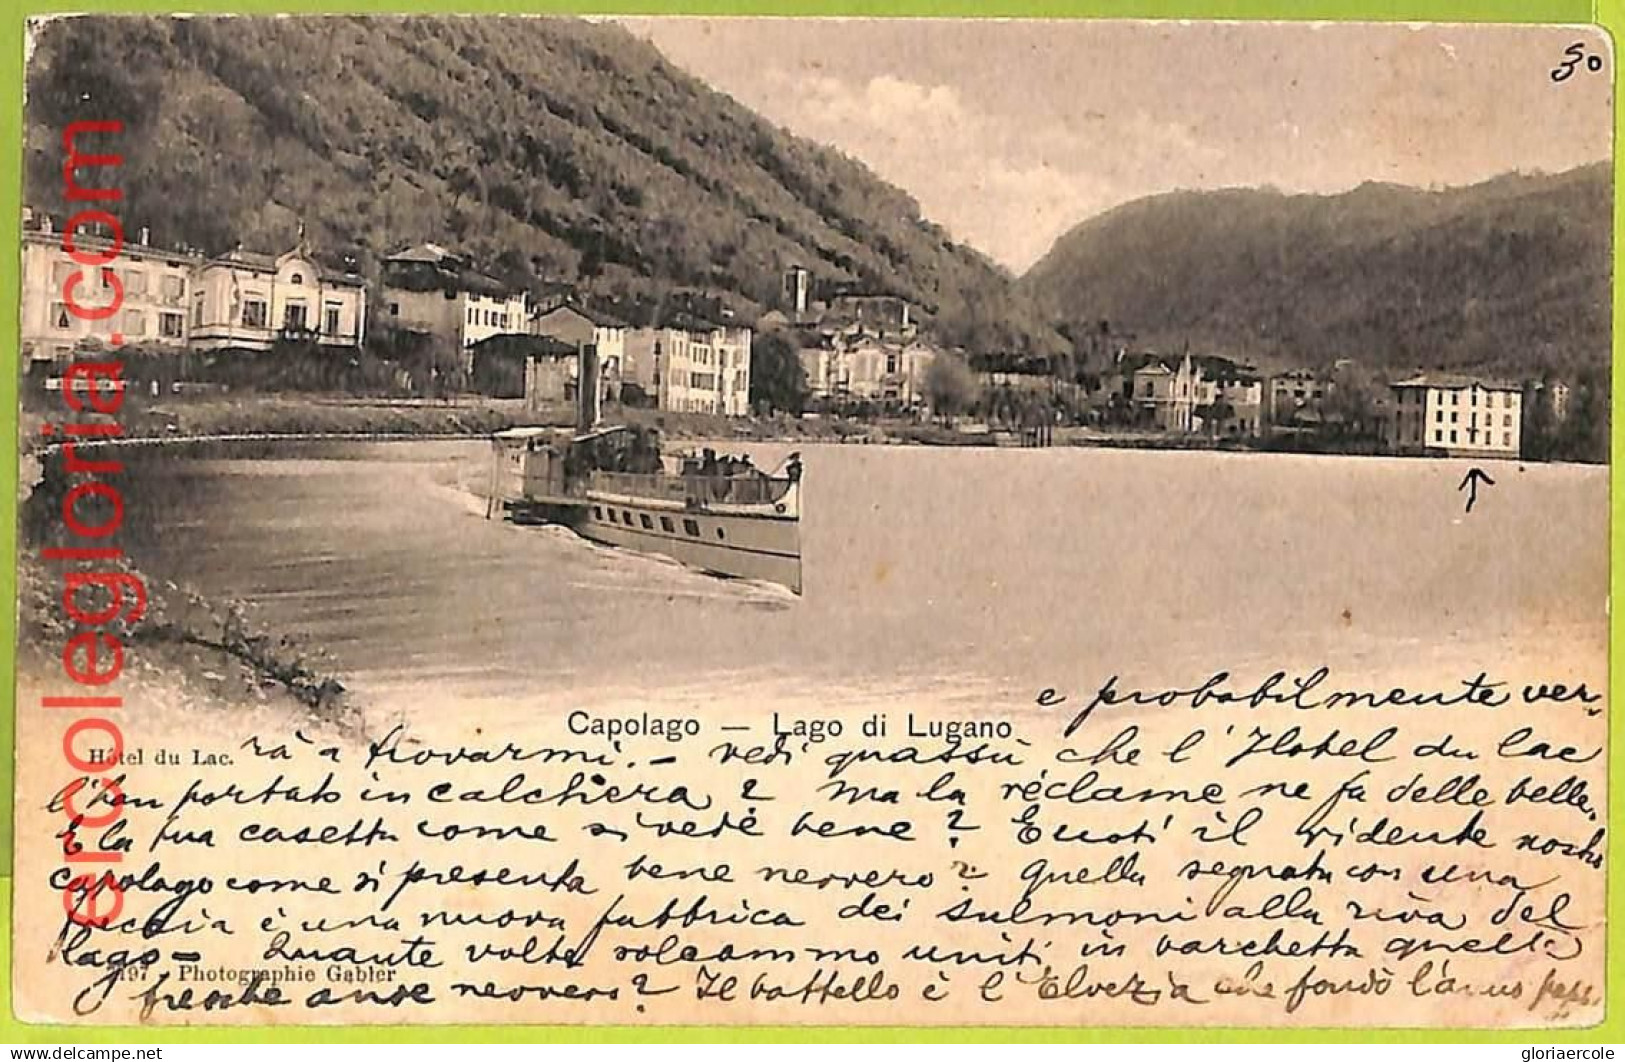 30
Capolago — Lago di Lugano
Hôtel du Lac.
e probabilmente ver-
rà a trovarmi. — vedi quassù che l'Hotel du lac
l'han portato in calchiera? Ma la réclame ne fa delle belle.
E la tua casetta come si vede bene? E quoti il ridente nostro
capolago come si presenta bene nevvero? Quella segnata con una
freccia è una nuova fabbrica dei Salmoni alla riva del
lago — Quante volte solcammo uniti in barchetta quelle
fresche onde nevvero? Il battello è l'Elvezia che fondò l'anno
197 Photographie Gabler
ercolegloria.com
delcampe.net
gloriaercole